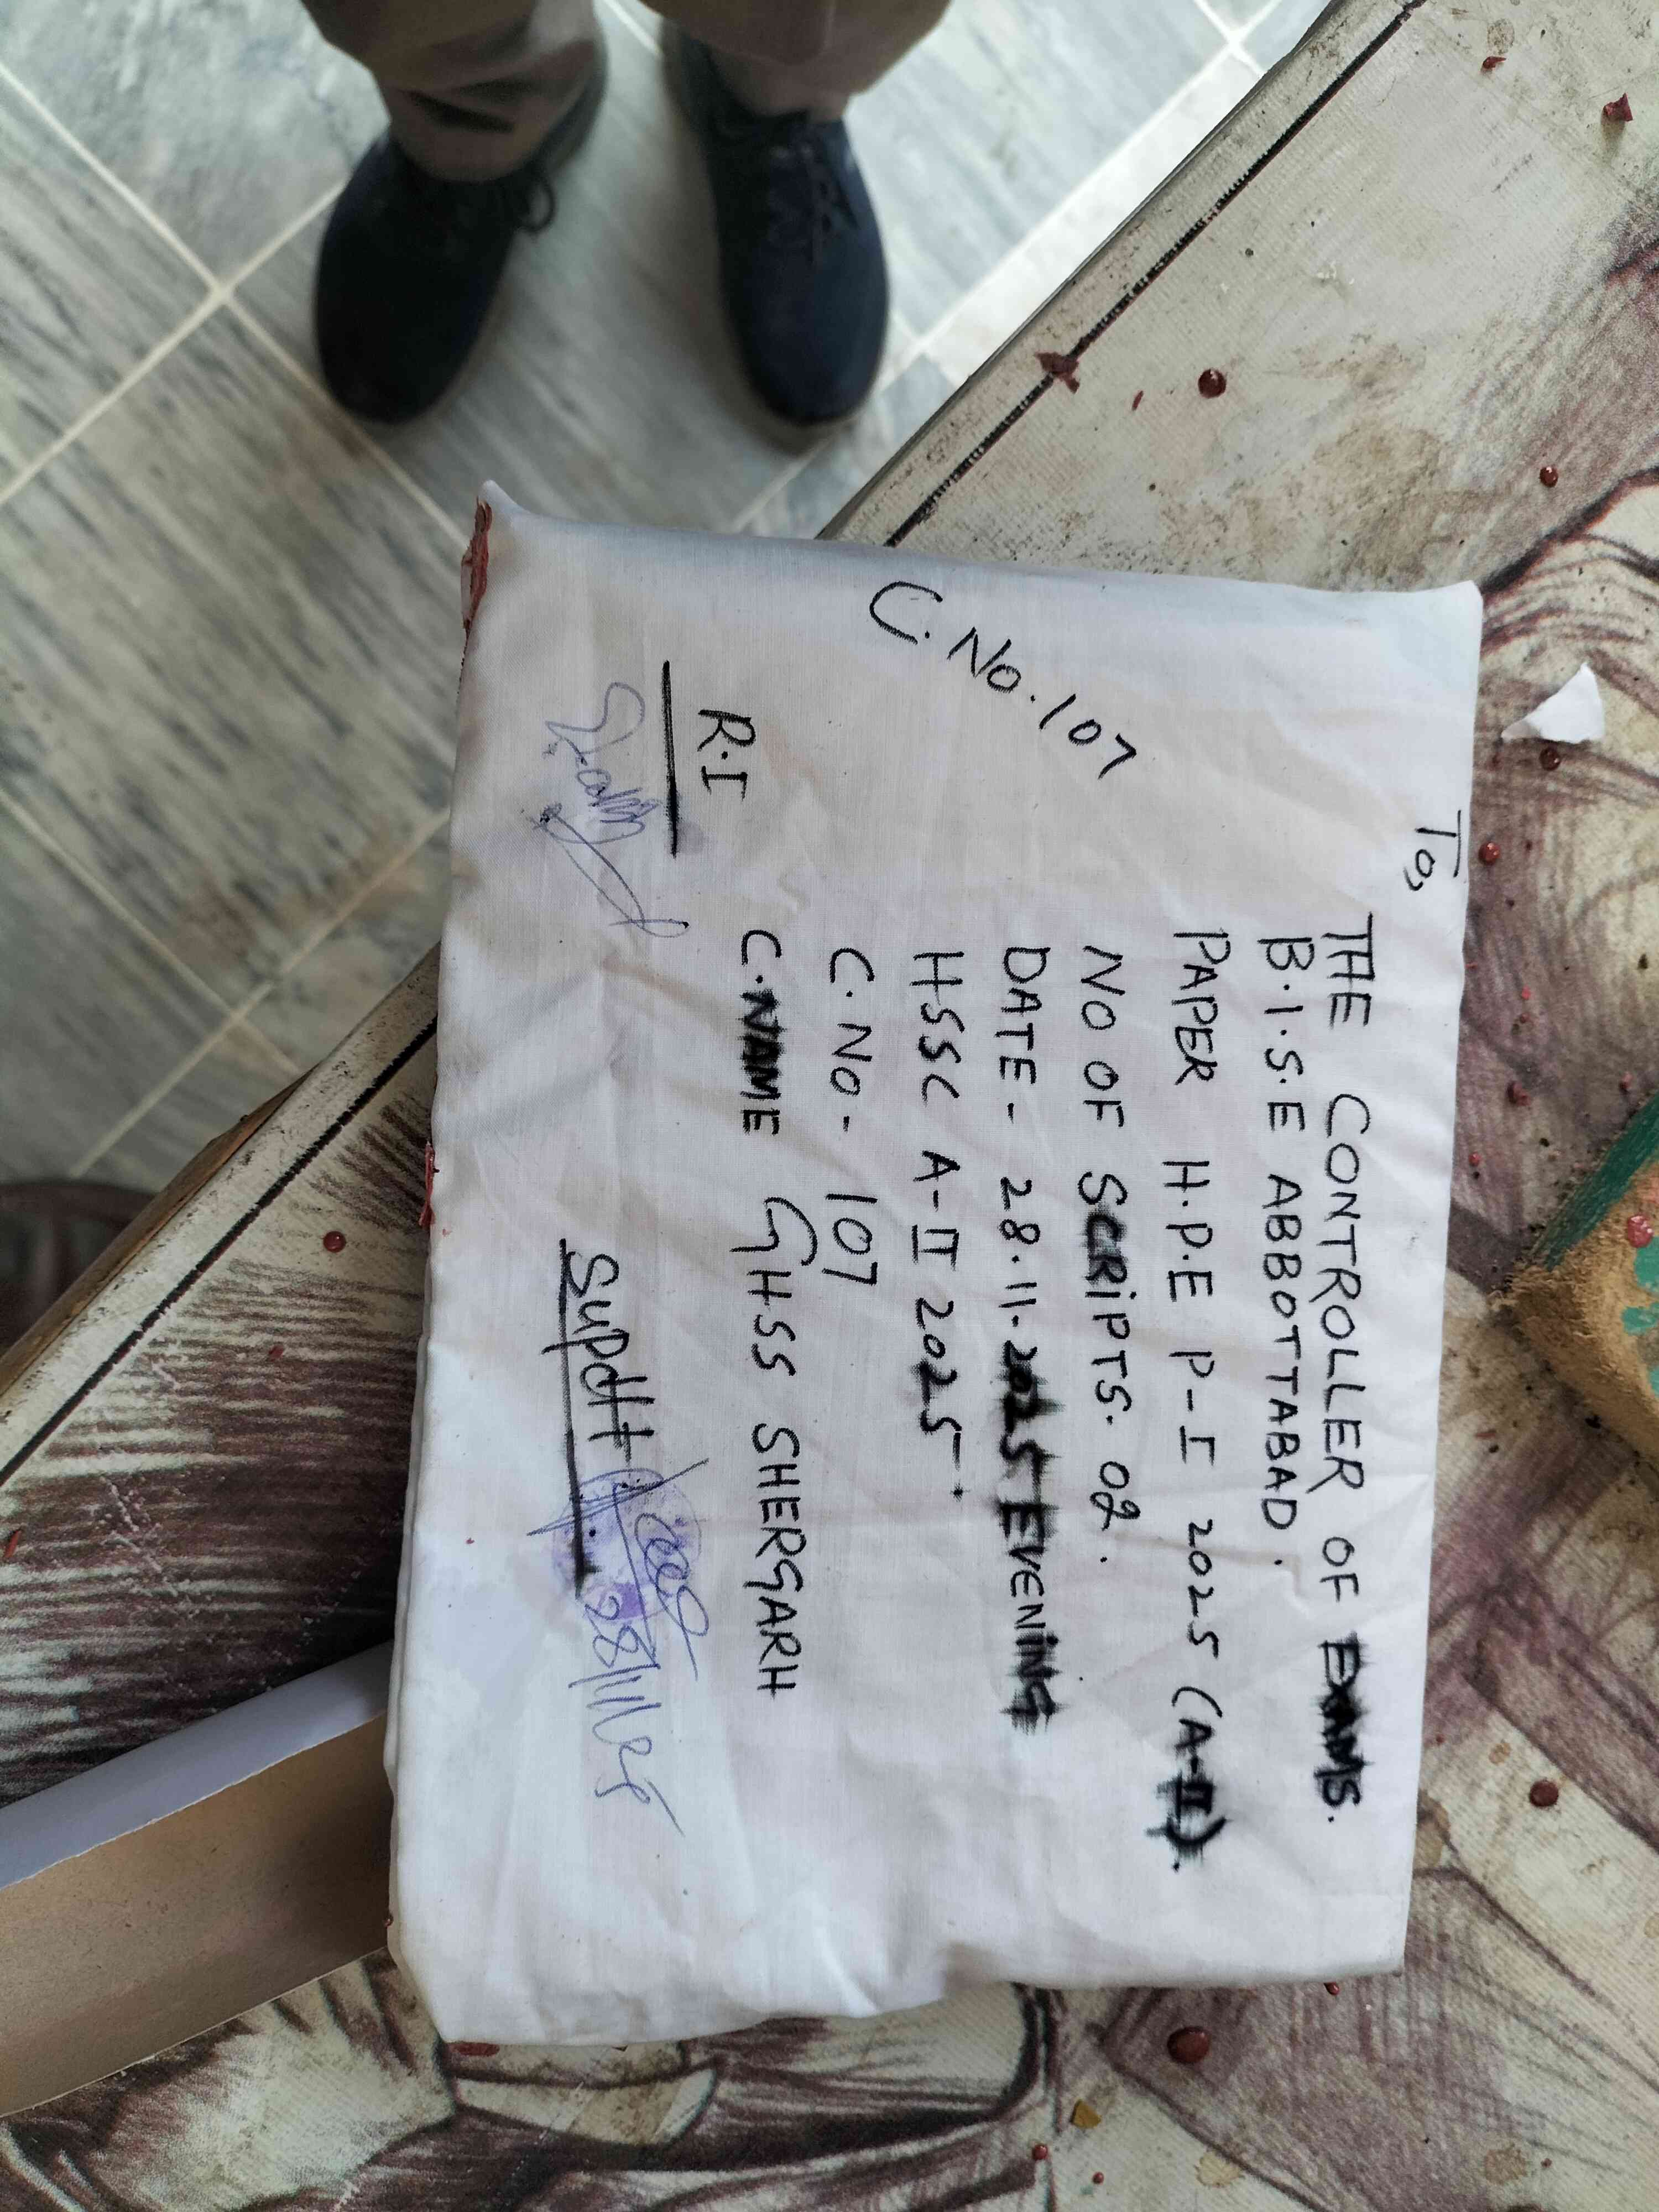 To,
C. No. 107
THE CONTROLLER OF EXAMS.
B.I.S.E ABBOTTABAD.
PAPER H.P.E P-I 2025 (A-II).
NO OF SCRIPTS. 02.
DATE - 28.11.2025 EVENING
HSSC A-II 2025.
C. No - 107
C. NAME GHSS SHERGARH
R.I
Supdtt
28/11/25